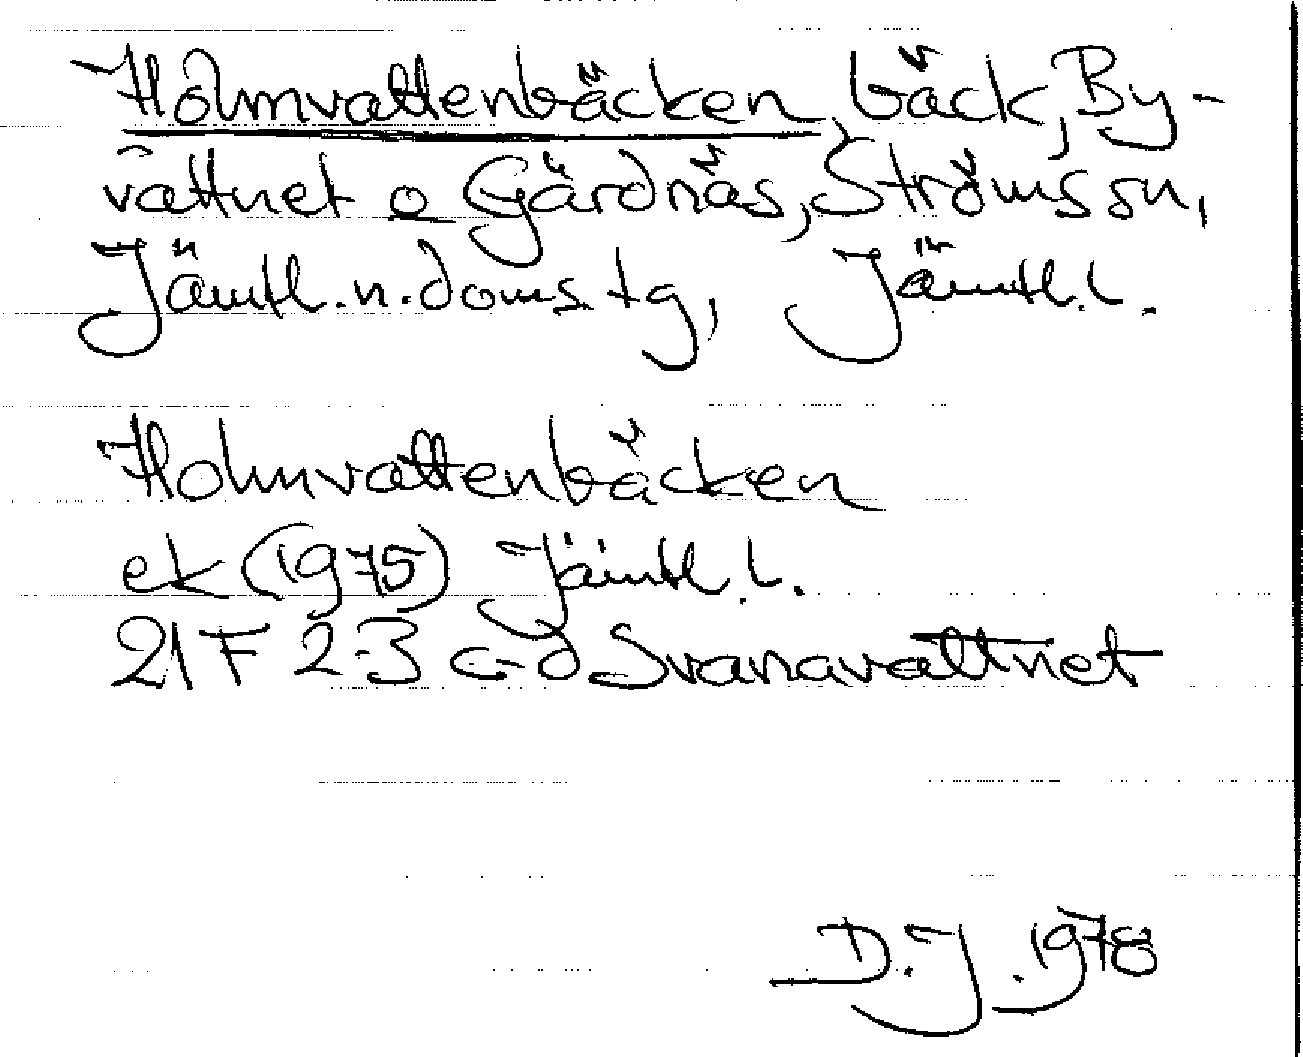 Holmvattenbäcken, bäck, By-
vattnet o Gärdnäs, Ströms sn,
Jämtl. n. doms. tg, Jämtl. l.
Holmvattenbäcken
ek (1975) Jämtl. L.
21 F 2-3 c-d Svanavattnet
D. J. 1978